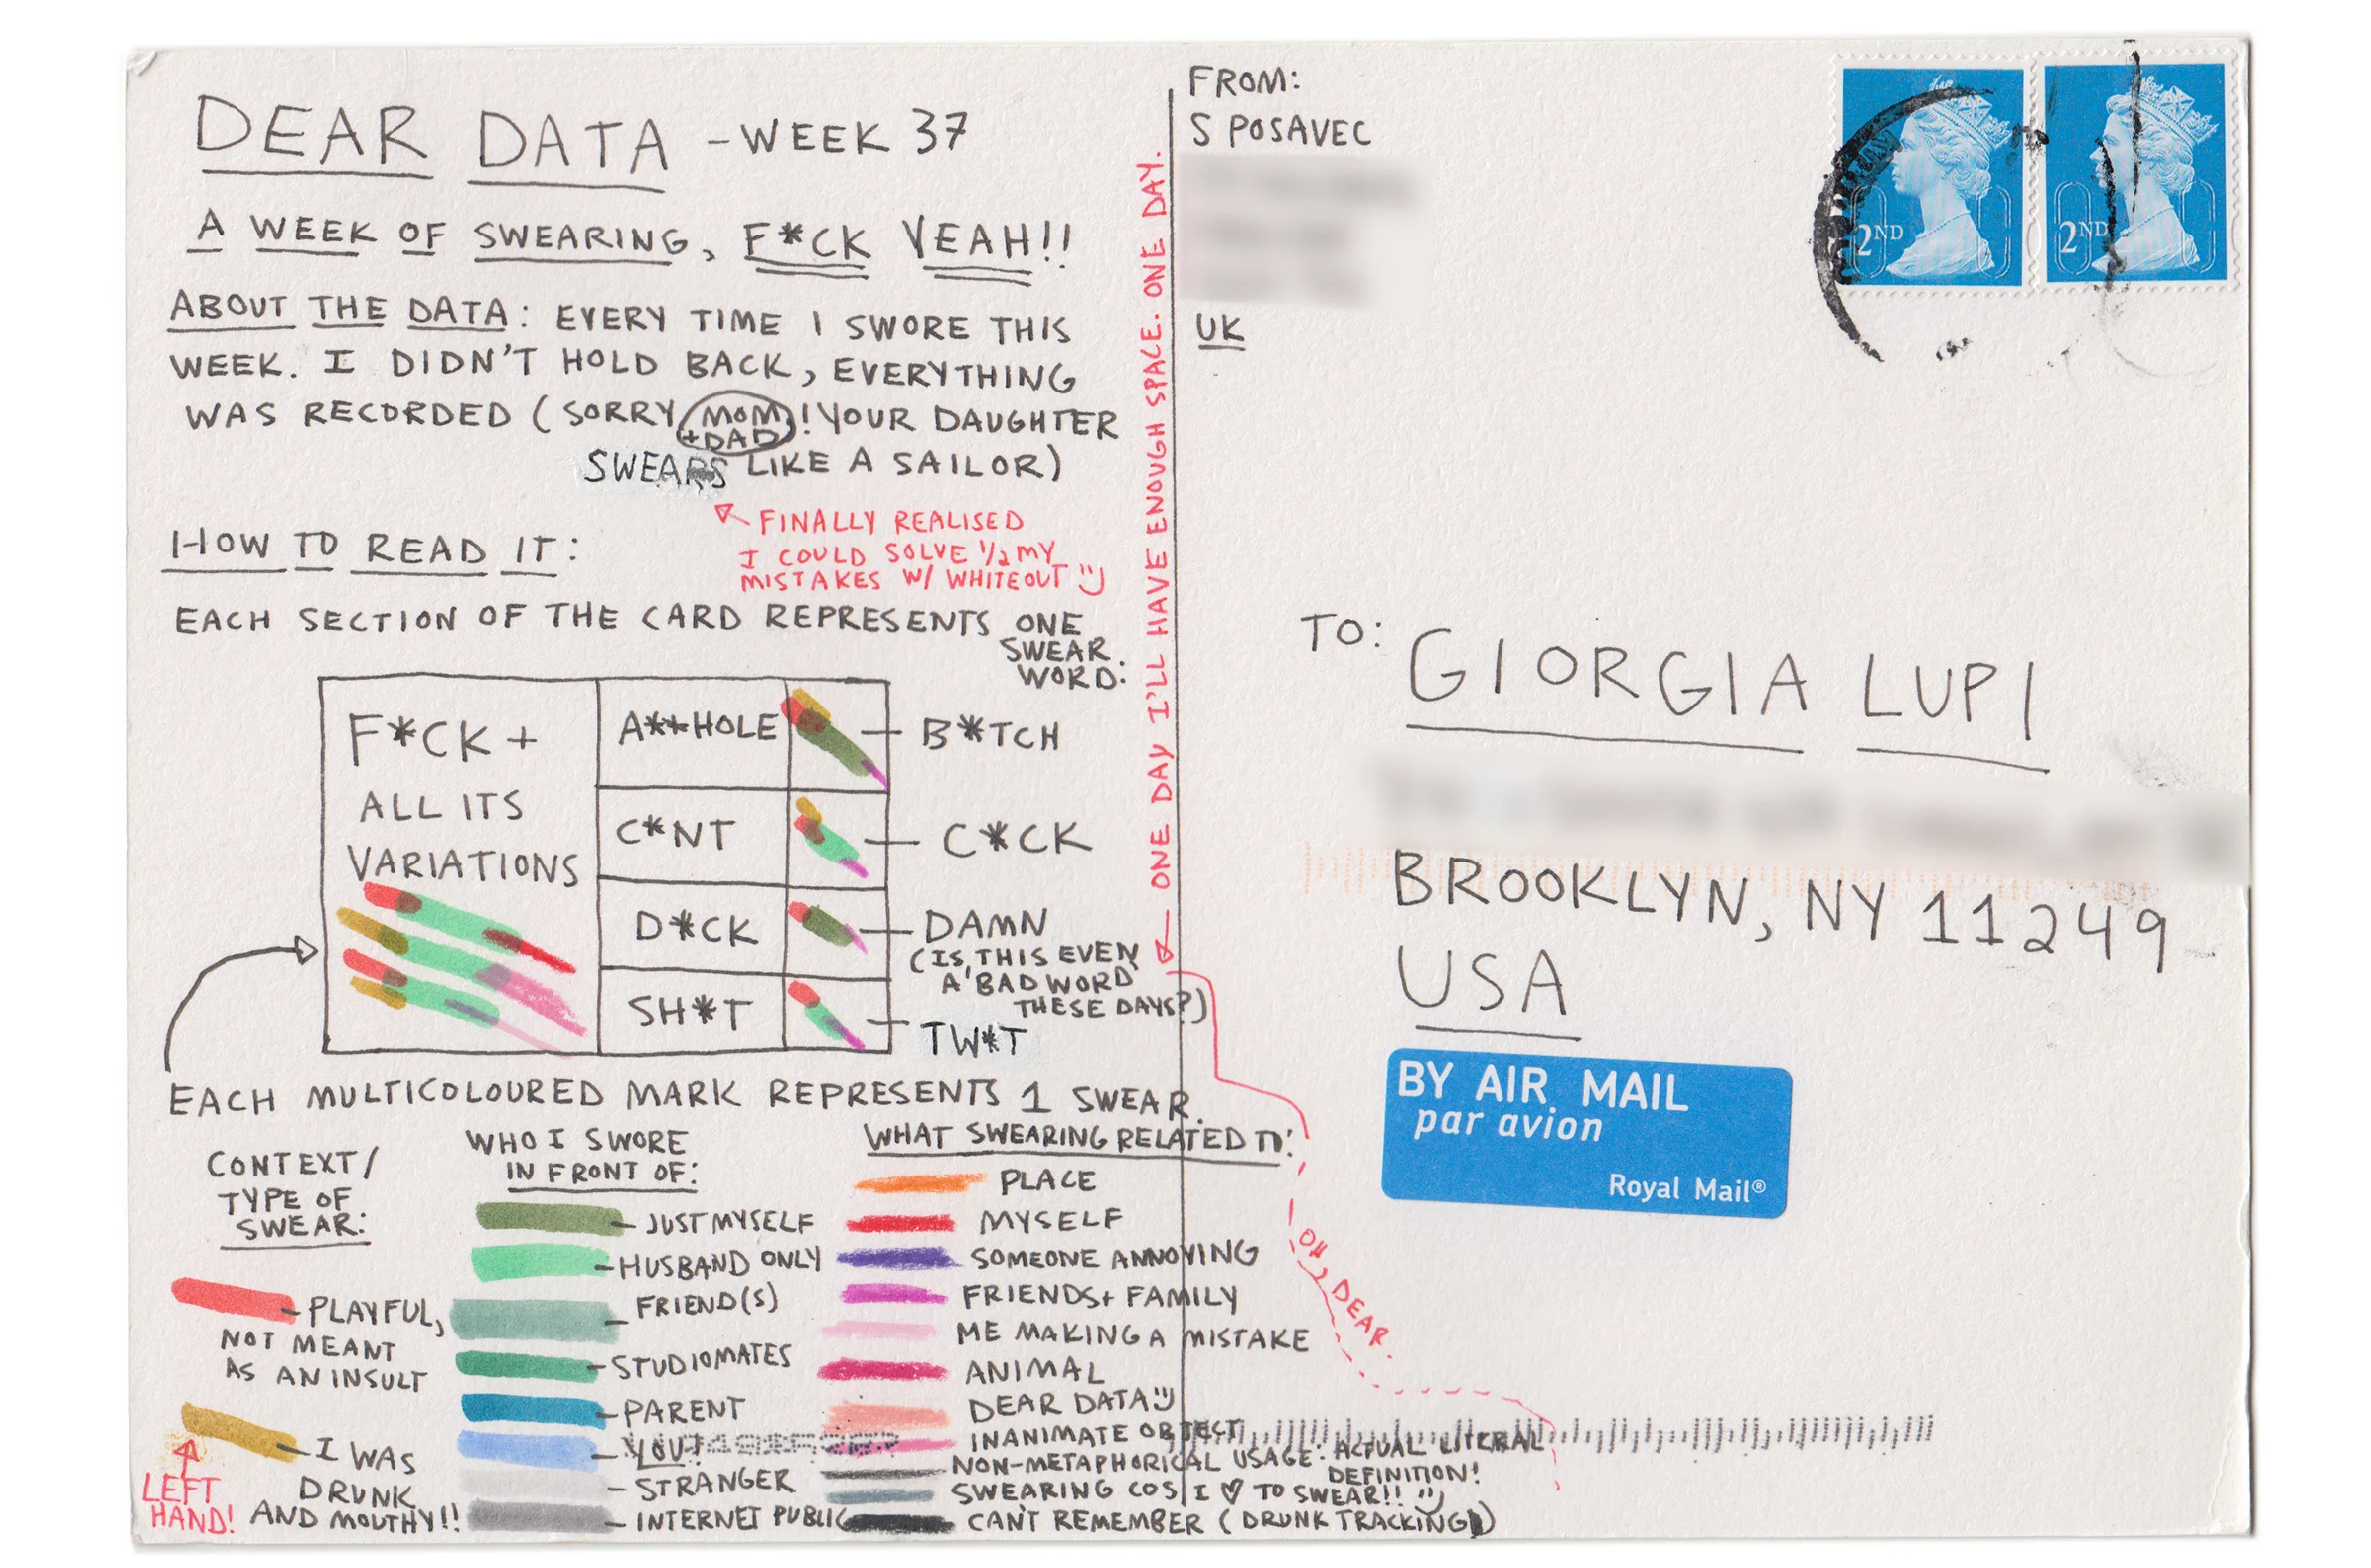 DEAR DATA - WEEK 37
A WEEK OF SWEARING, F*CK YEAH!!
ABOUT THE DATA: EVERY TIME I SWORE THIS
WEEK. I DIDN'T HOLD BACK, EVERYTHING
WAS RECORDED (SORRY MOM + DAD! YOUR DAUGHTER
SWEARS LIKE A SAILOR)
FINALLY REALISED
I COULD SOLVE 1/2 MY
MISTAKES W/ WHITEOUT
HOW TO READ IT:
EACH SECTION OF THE CARD REPRESENTS ONE
SWEAR
WORD:
F*CK +
ALL ITS
VARIATIONS
A**HOLE
B*TCH
C*NT
C*CK
D*CK
DAMN
(IS THIS EVEN
A 'BAD WORD'
THESE DAYS?)
SH*T
TW*T
EACH MULTICOLOURED MARK REPRESENTS 1 SWEAR.
CONTEXT/
TYPE OF
SWEAR:
PLAYFUL,
NOT MEANT
AS AN INSULT
I WAS
DRUNK
AND MOUTHY!!
LEFT
HAND!
WHO I SWORE
IN FRONT OF:
JUST MYSELF
HUSBAND ONLY
FRIEND(S)
STUDIOMATES
PARENT
YOU!
STRANGER
INTERNET PUBLIC
WHAT SWEARING RELATED TO:
PLACE
MYSELF
SOMEONE ANNOYING
FRIENDS + FAMILY
ME MAKING A MISTAKE
ANIMAL
DEAR DATA
INANIMATE OBJECT
NON-METAPHORICAL USAGE: ACTUAL LITERAL
DEFINITION!
SWEARING COS I ♡ TO SWEAR!!
CAN'T REMEMBER (DRUNK TRACKING)
ONE DAY I'LL HAVE ENOUGH SPACE. ONE DAY.
OH, DEAR.
FROM:
S POSAVEC
UK
2ND
2ND
TO:
GIORGIA LUPI
BROOKLYN, NY 11249
USA
BY AIR MAIL
par avion
Royal Mail®